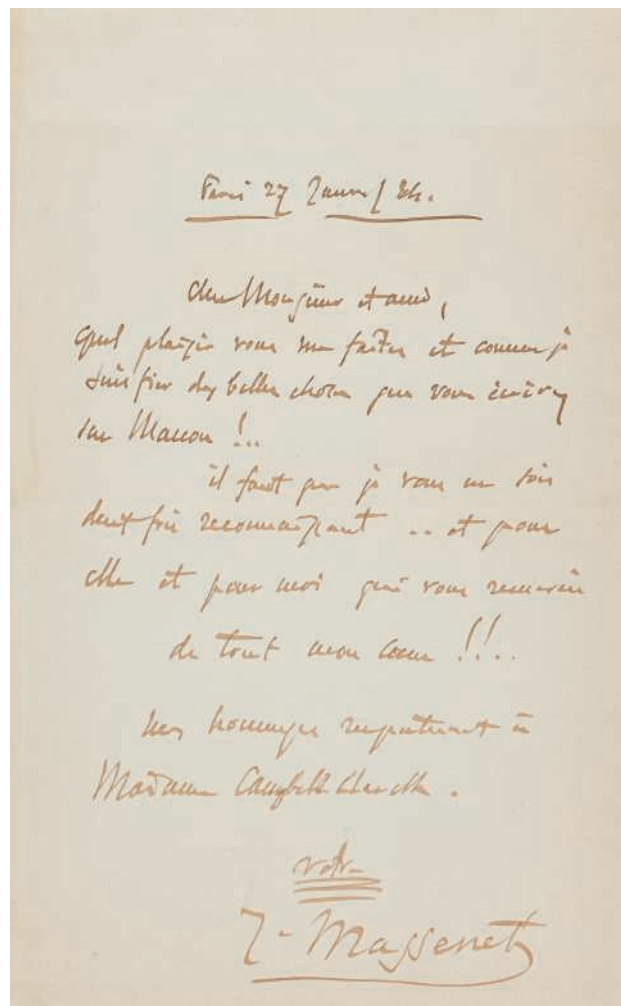 Paris 27 Janv/84.
cher Monsieur et ami,
quel plaisir vous me faites et comme je
suis fier des belles choses que vous écrivez
sur Manon !..
il faut que je vous en sois
deux fois reconnaissant .. et pour
elle et pour moi qui vous remercie
de tout mon cœur !!..
mes hommages respectueux à
Madame Campbell Clarke.
votre
J. Massenet